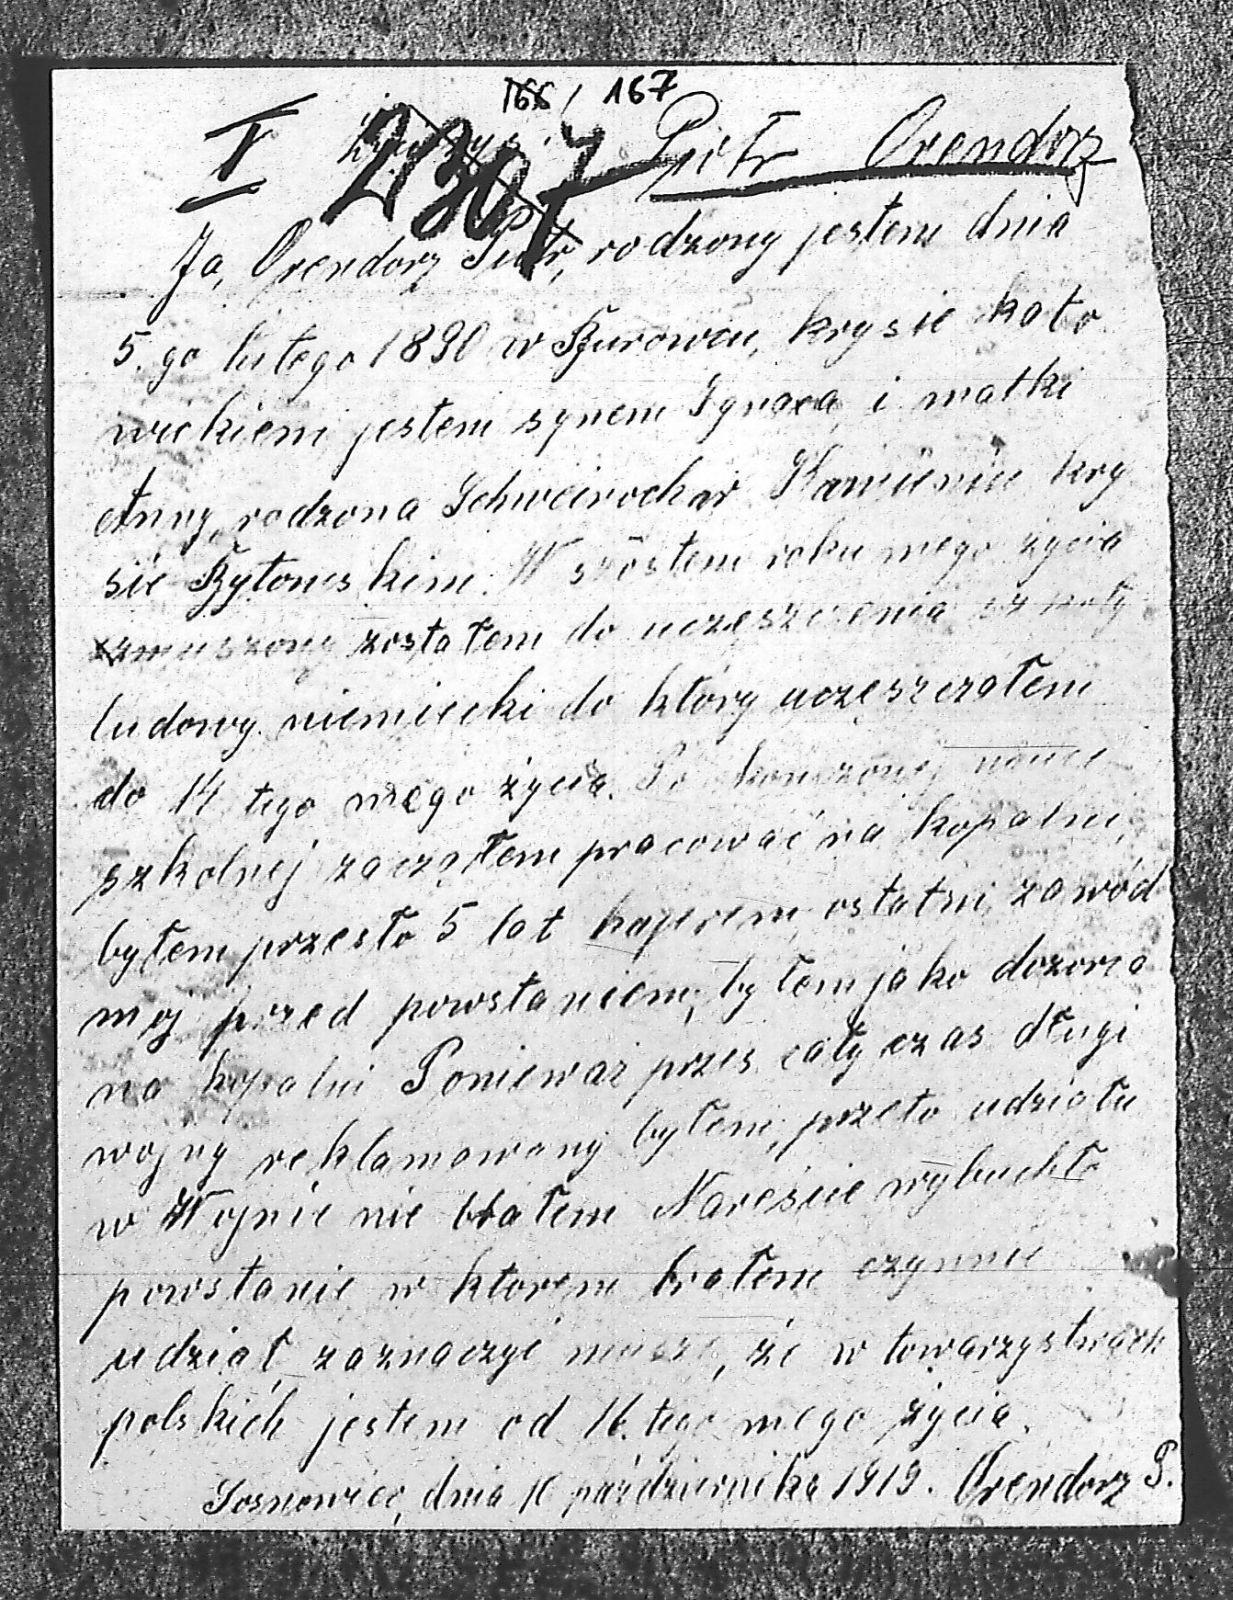 166 / 167
I 2307 Piotr Orendorz
Ja, Orendorz Piotr, rodzony jestem dnia
5. go lutego 1890 w Burowcu, krysie kato
wickiem jestem synem Ignaca i matki
Anny, rodzona Schweinoch w Kamieniu kry
sie Bytomskim. W szóstem roku mego życia
zmuszony zostałem do uczęszczenia szkoły
ludowy niemiecki do który uczęszczałem
do 14 tego mego życia. Po kończonej nauce
szkolnej zacząłem pracować na kopalni,
byłem przesło 5 lat hajerem, ostatni zawód
moj przed powstaniem, byłem jako dozorca
na kopalni Poniewaz przes cały czas długi
wojny reklamowany byłem, przeto udziału
w Wojnie nie brałem Nareście wybuchło
powstanie w ktorem brałem czynnie
udział, zaznaczyć muszę, że w towarzystwach
polskich jestem od 16. tego mego życia.
Sosnowiec, dnia 16 października 1919. Orendorz P.